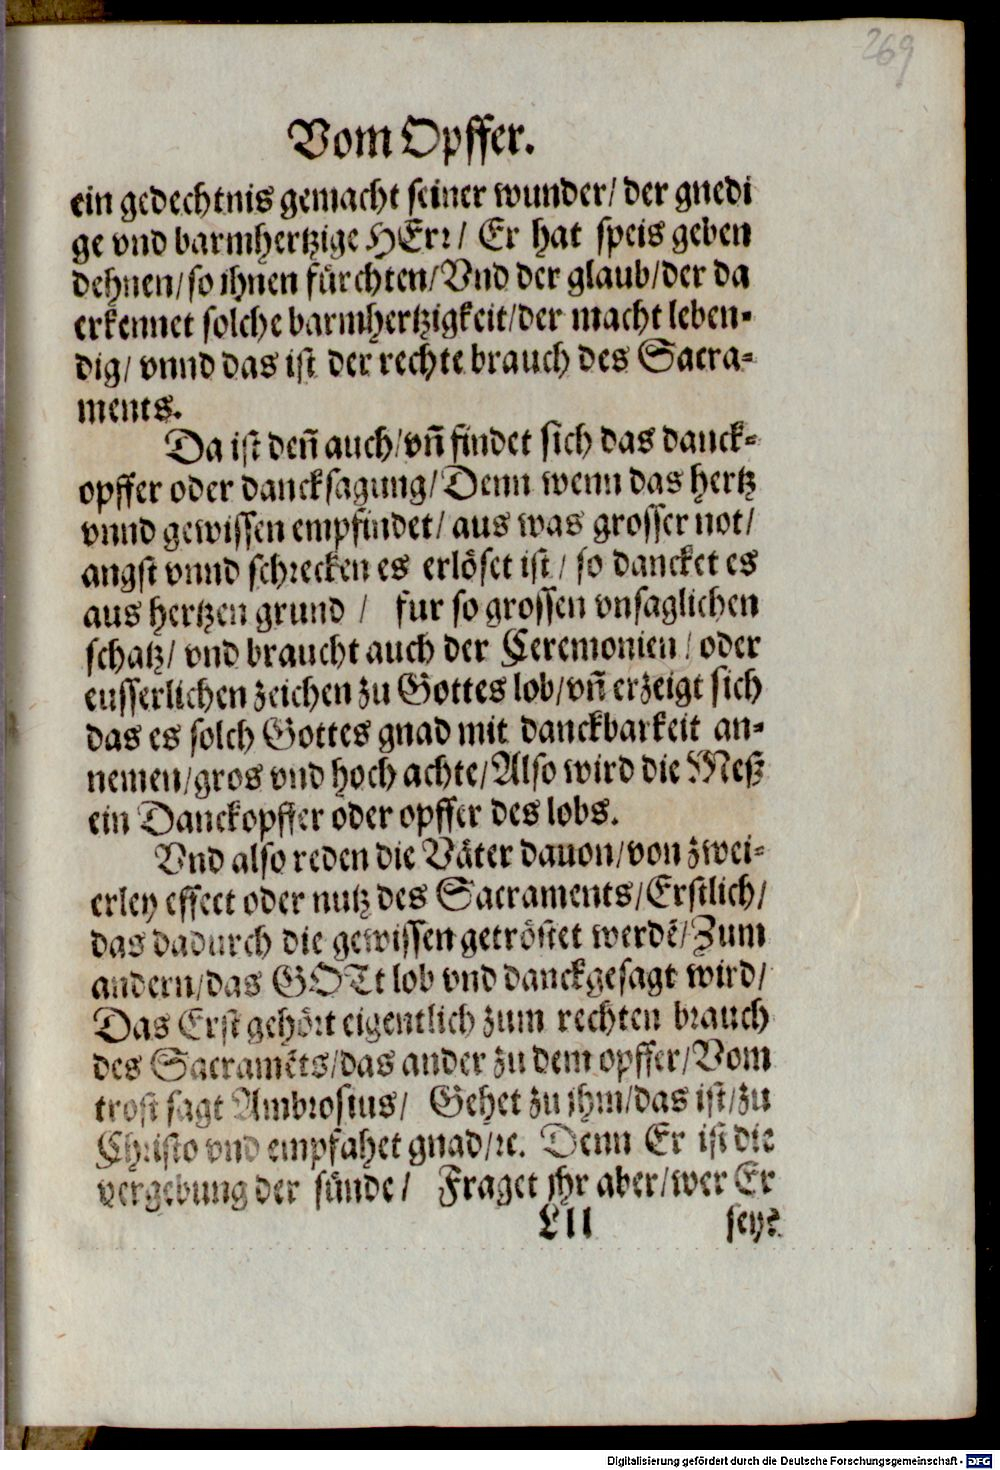 269
Vom Opffer.
ein gedechtnis gemacht seiner wunder/ der gnedi
ge vnd barmhertzige HErr/ Er hat speis geben
dehnen/so ihnen fürchten/Vnd der glaub/der da
erkennet solche barmhertzigkeit/der macht leben-
dig/ vnnd das ist der rechte brauch des Sacra-
ments.
Da ist deñ auch/vñ findet sich das danck-
opffer oder dancksagung/Denn wenn das hertz
vnnd gewissen empfindet/ aus was grosser not/
angst vnnd schrecken es erlöset ist/ so dancket es
aus hertzen grund / fur so grossen vnsaglichen
schatz/ vnd braucht auch der Ceremonien/ oder
eusserlichen zeichen zu Gottes lob/vñ erzeigt sich
das es solch Gottes gnad mit danckbarkeit an-
nemen/gros vnd hoch achte/Also wird die Meß
ein Danckopffer oder opffer des lobs.
Vnd also reden die Väter dauon/von zwei-
erley effect oder nutz des Sacraments/Erstlich/
das dadurch die gewissen getröstet werdē/Zum
andern/das GOTt lob vnd danckgesagt wird/
Das Erst gehört eigentlich zum rechten brauch
des Sacramēts/das ander zu dem opffer/Vom
trost sagt Ambrosius/ Gehet zu ihm/das ist/zu
Christo vnd empfahet gnad/ꝛc. Denn Er ist die
vergebung der sünde/ Fraget ihr aber/wer Er
Lll sey?
Digitalisierung gefördert durch die Deutsche Forschungsgemeinschaft - DFG